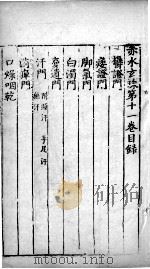 赤水玄珠第十一卷目録
鬱證門
痿證門
脚氣門
白濁門
夢遺門
汗門 附頭汗 手足汗
消癉門
口燥咽乾